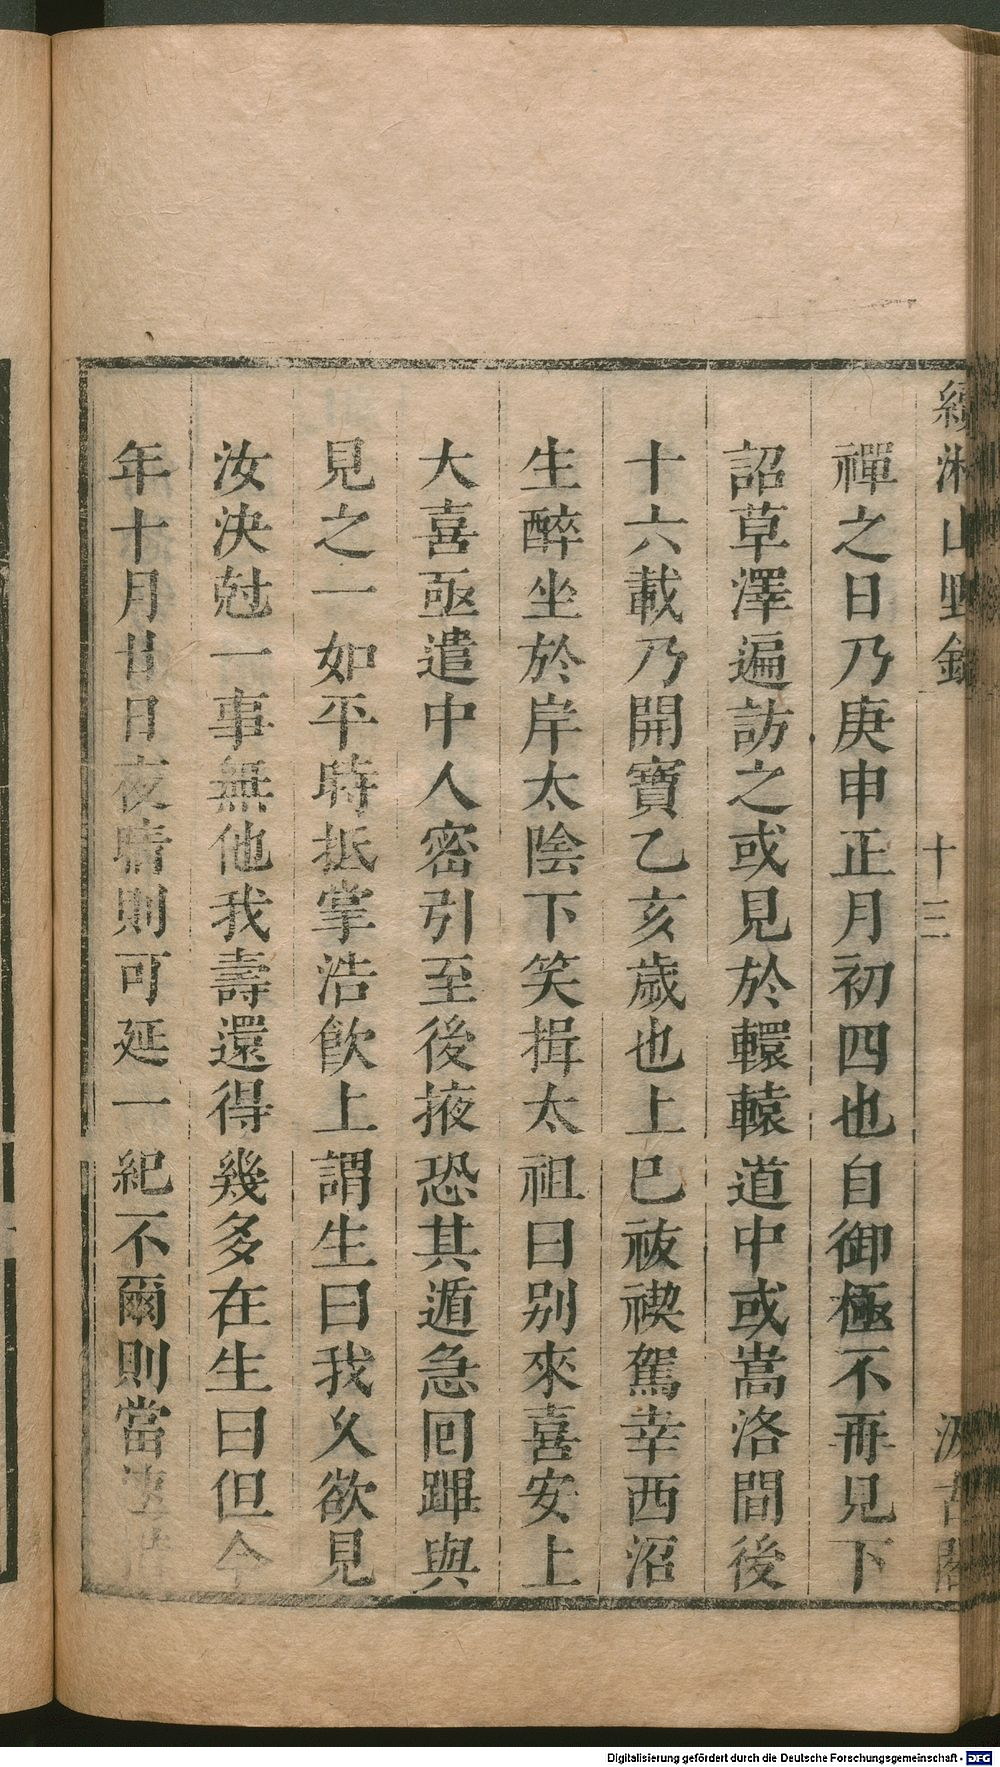 續湘山野錄 十三 汲古閣
禪之日乃庚申正月初四也自御極不再見下
詔草澤遍訪之或見於轘轅道中或嵩洛間後
十六載乃開寶乙亥歲也上巳祓禊駕幸西沼
生醉坐於岸太陰下笑揖太祖曰別來喜安上
大喜亟遣中人密引至後掖恐其遁急回蹕與
見之一如平時抵掌浩飲上謂生曰我久欲見
汝決尅一事無他我壽還得幾多在生曰但今
年十月廿日夜晴則可延一紀不爾則當速措
Digitalisierung gefördert durch die Deutsche Forschungsgemeinschaft - DFG